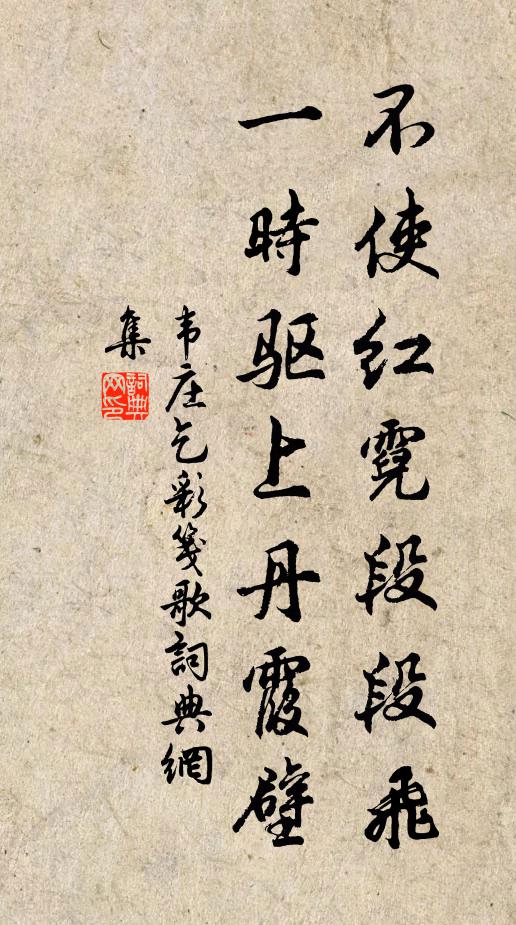 不使红霓段段飛
一時驱上丹霞壁
韦庄乞彩箋歌詞典網
集
詞典網印